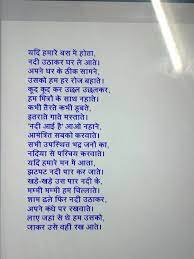 यदि हमारे बस में होता,
नदी उठाकर घर ले आते।
अपने घर के ठीक सामने,
उसको हम हर रोज बहाते।
कूद कूद कर उछल उछलकर,
हम मित्रों के साथ नहाते।
कभी तैरते कभी डूबते,
इतराते गाते मस्ताते।
'नदी आई है' आओ नहाने,
आमंत्रित सबको करवाते।
सभी उपस्थित भद्र जनों का,
नदिया से परिचय करवाते।
यदि हमारे मन में आता,
झटपट नदी पार कर जाते।
खड़े-खड़े उस पार नदी के,
मम्मी मम्मी हम चिल्लाते।
शाम ढले फिर नदी उठाकर,
अपने कंधे पर रखवाते।
लाए जहां से थे हम उसको,
जाकर उसे वहीं रख आते।